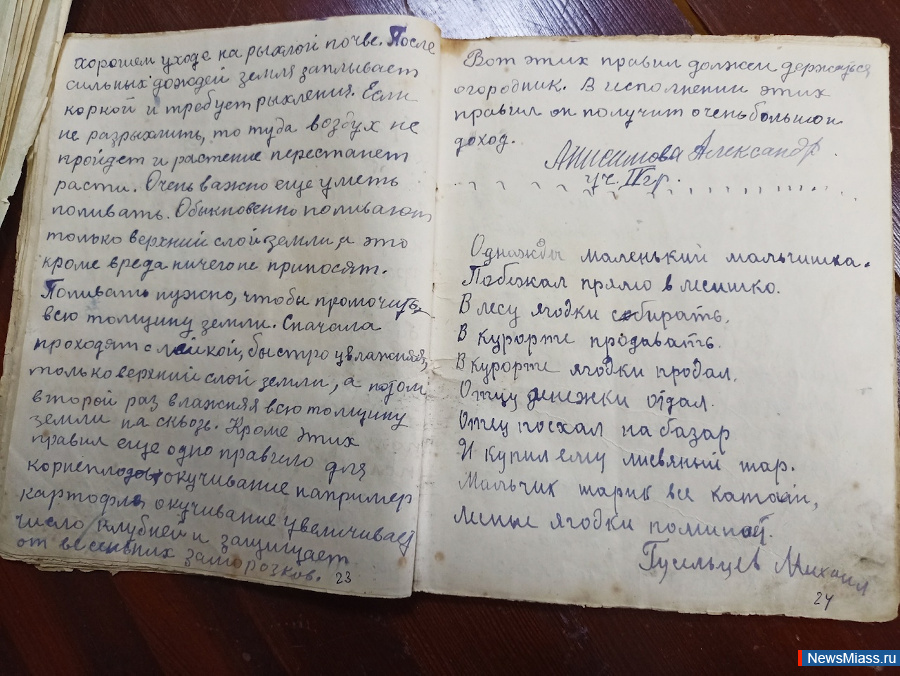 хорошем уходе на рыхлой почве. После
сильных дождей земля заплывает
коркой и требует рыхления. Если
не разрыхлить, то туда воздух не
пройдет и растение перестанет
расти. Очень важно еще уметь
поливать. Обыкновенно поливают
только верхний слой земли и это
кроме вреда ничего не приносят.
Поливать нужно, чтобы промочить
всю толщину земли. Сначала
проходят с лейкой, быстро увлажняя,
только верхний слой земли, а потом
второй раз влажняя всю толщину
земли на сквозь. Кроме этих
правил еще одно правило для
корнеплодов окучивание например
картофля, окучивание увеличивает
число клубней и защищает
от весенних заморозков. 23
Вот этих правил должен держатся
огородник. В исполнении этих
правил он получит очень большой
доход.
Анисимова Александр.
уч. IV гр.
Однажды маленький мальчишка.
Побежал прямо в лесишко.
В лесу ягодки собирать,
В курорте продавать.
В курорте ягодки продал,
Отцу денежки отдал.
Отец поехал на базар
И купил ему шар.
Мальчик шарик все катай,
Лесные ягодки поминай.
Гусельцев Михаил
24
NewsMiass.ru